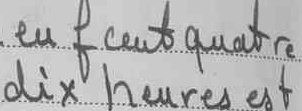 neuf cent quatre
dix heures est